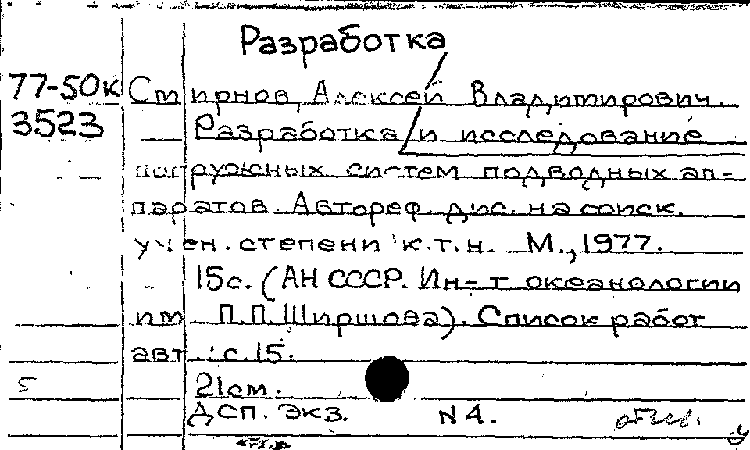 Разработка
77-50к Смирнов, Алексей Владимирович.
3523 Разработка и исследование
погружных систем подводных ап-
паратов. Автореф. дис. на соиск.
учен. степени к.т.н. М., 1977.
15с. (АН СССР. Ин-т океанологии
им П.П. Ширшова). Список работ
авт.: с.15.
5 21см.
ДСП. Экз. N 4.